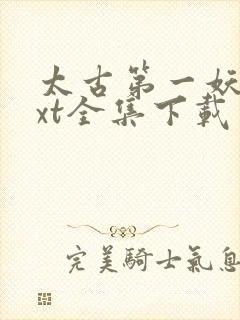 太古第一妖
xt全集下載
完美騎士氣息